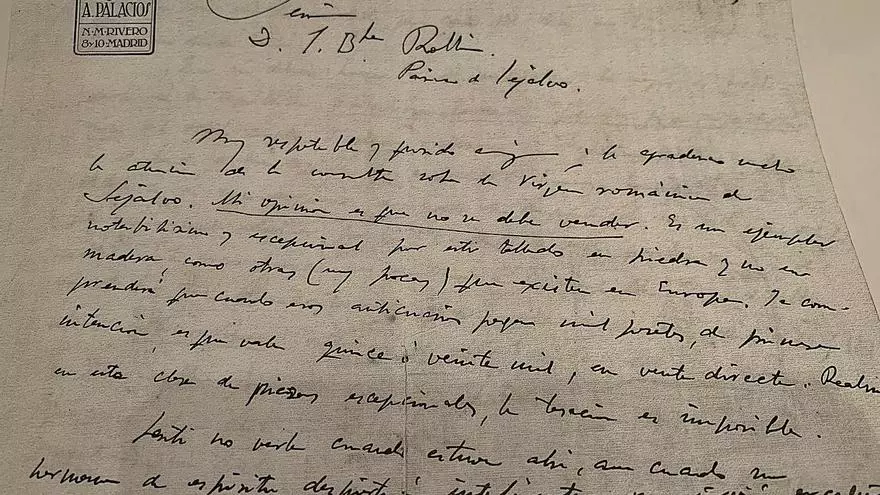 A. PALACIOS
N·M·RIVERO
8 y 10·MADRID
D. J. Bta
de Sejalvo.
Muy respetable y querido amigo: le agradezco mucho
la atención de la consulta sobre la Virgen románica de
Sejalvo. Mi opinión es que no se debe vender. Es un ejemplar
notabilísimo y excepcional por estar tallado en piedra y no en
madera, como otras (muy pocas) que existen en Europa. Ya com-
prenderá que cuando esos anticuarios pagan mil pesetas, de primera
intención, es que vale quince ó veinte mil, en venta directa.
en esta clase de piezas excepcionales, la tasación es imposible.
Sentí no verle cuando estuve ahí, aun cuando un
hermano de espíritu despierto é